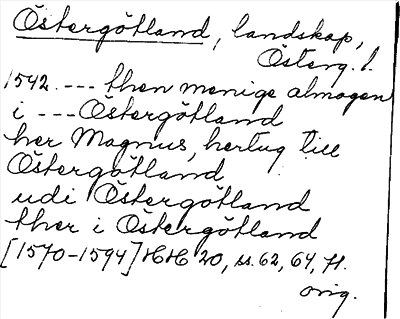 Östergötland, landskap,
Österg. l.
1542. --- then menige almogen
i --- Östergötland
her Magnus, hertug till
Östergötland
udi Östergötland
ther i Östergötland
[1570-1594] HH 20, ss. 62, 64, 71.
orig.